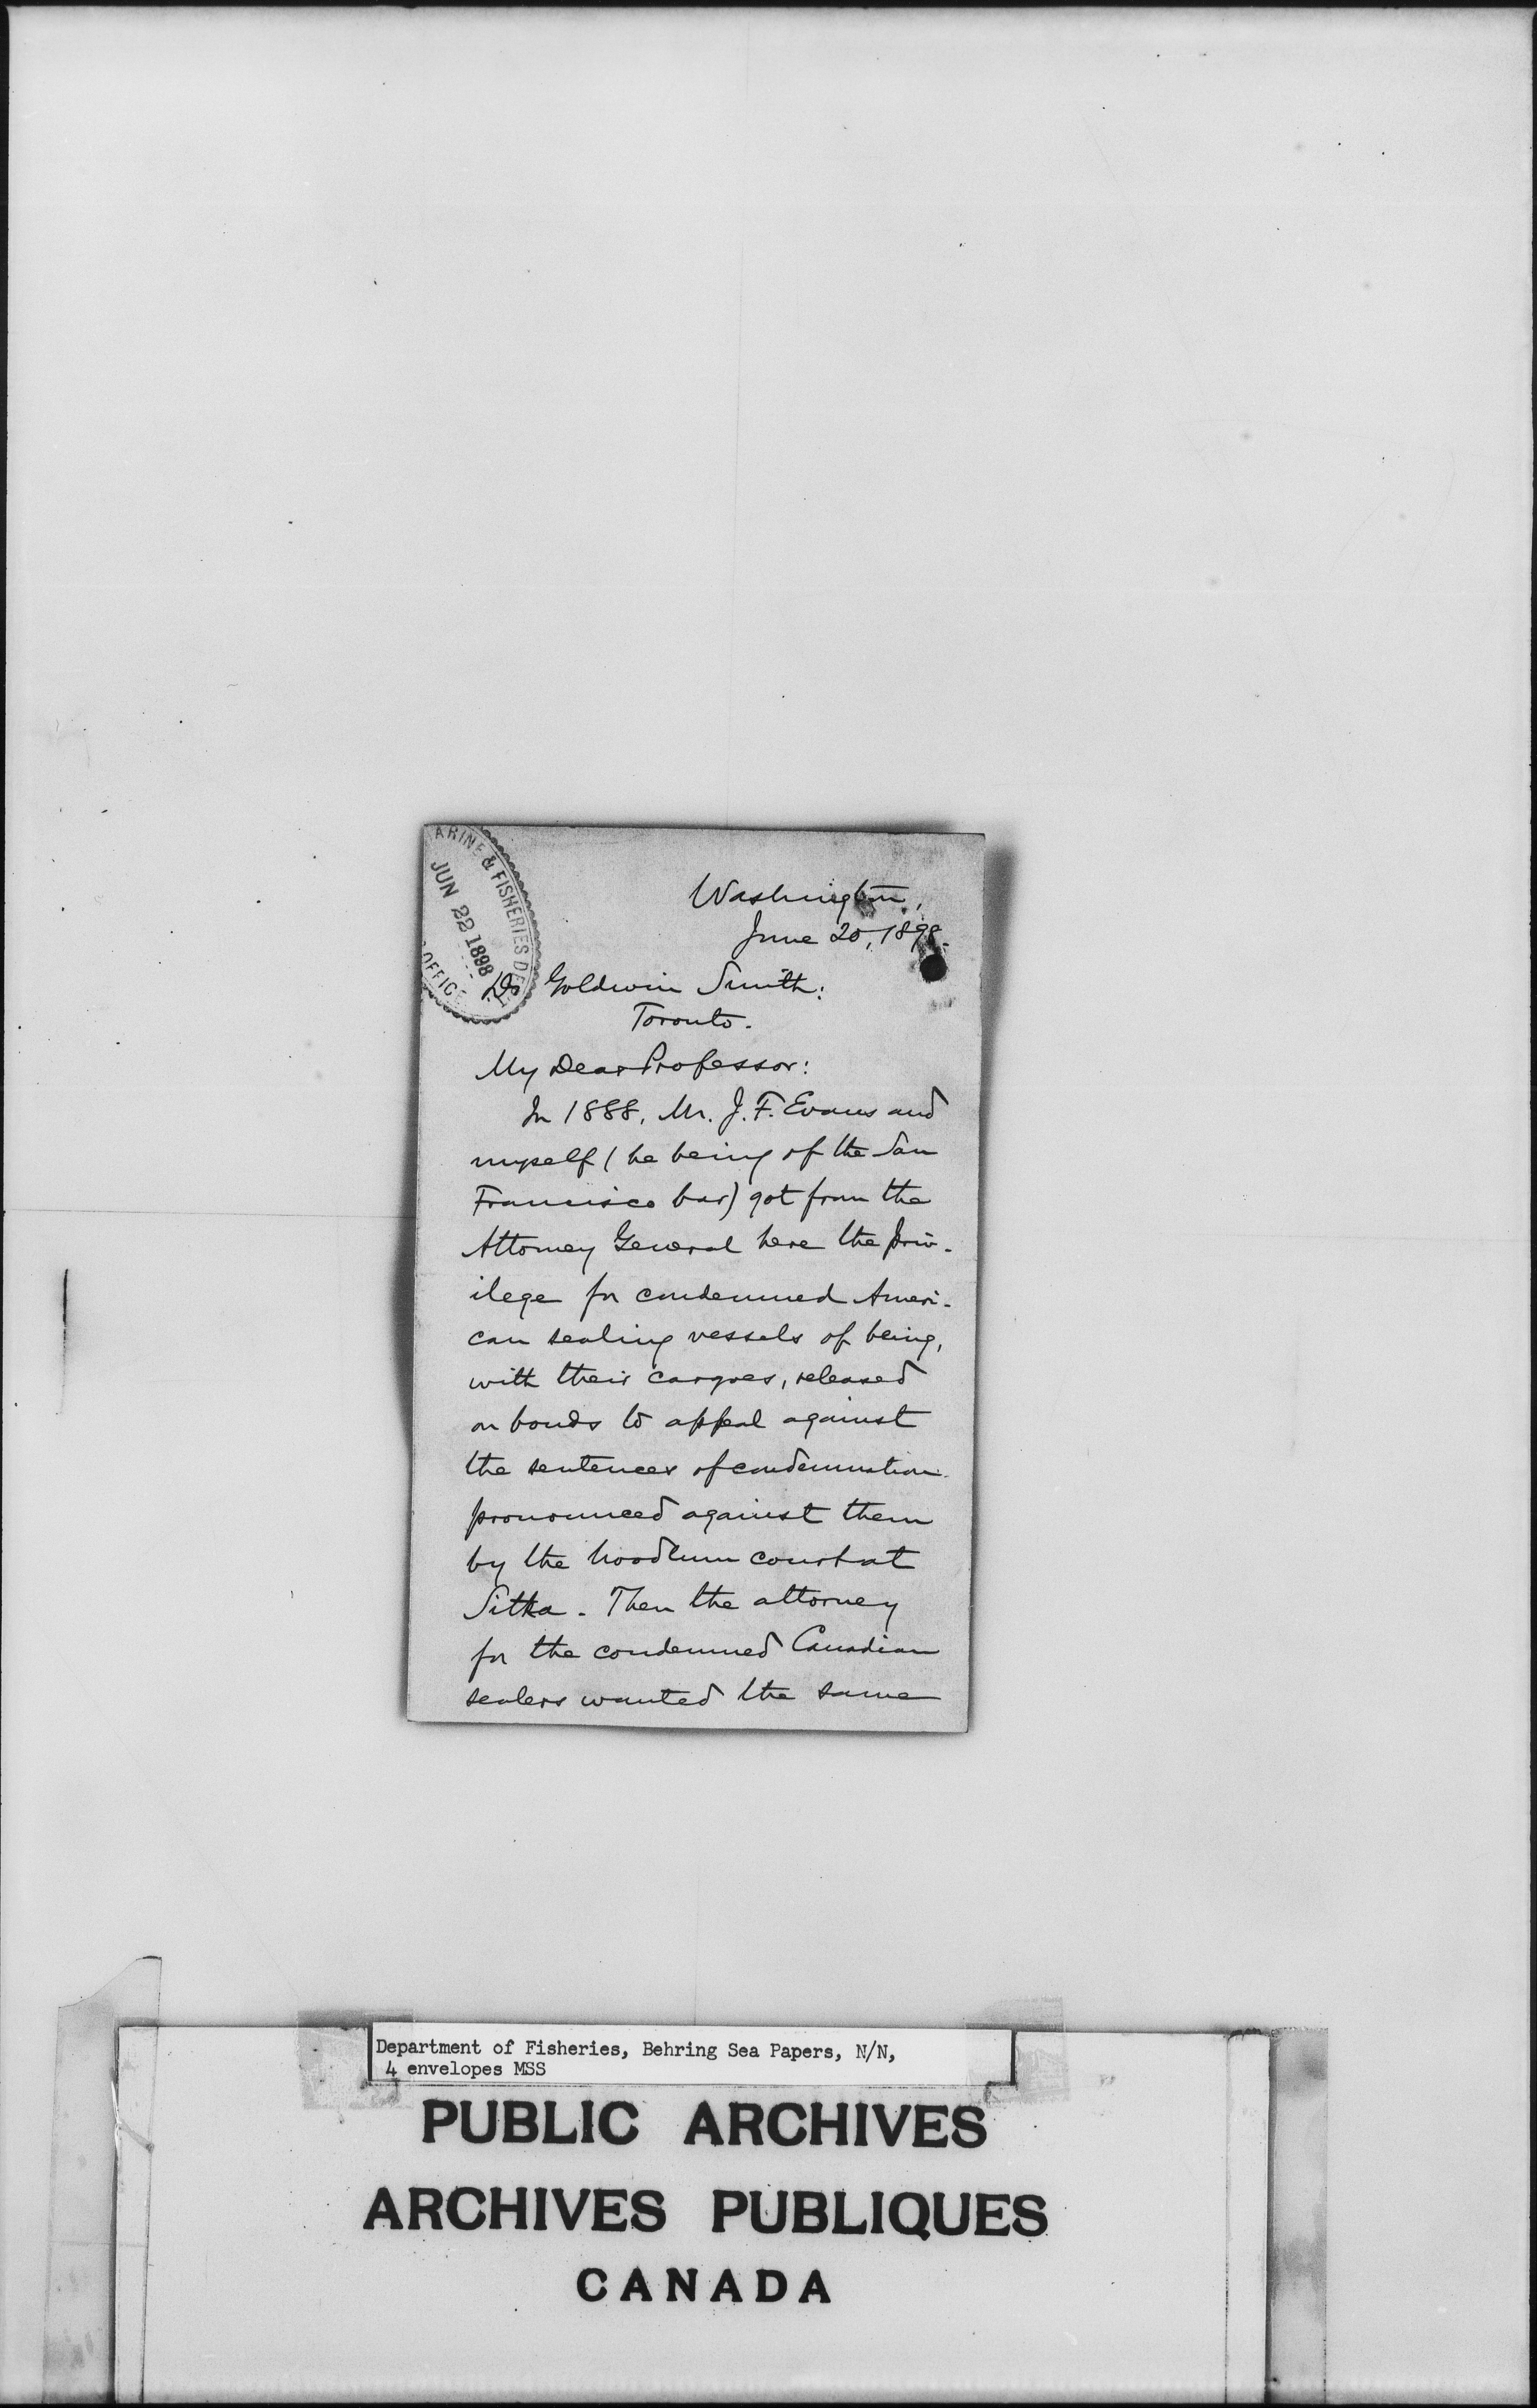 ARINE & FISHERIES DE
JUN 22 1898
OFFICE
Washington,
June 20, 1898.
Dr Goldwin Smith:
Toronto.
My Dear Professor:
In 1888, Mr. J. F. Evans and
myself (he being of the San
Francisco bar) got from the
Attorney General here the priv-
ilege for condemned Ameri-
can sealing vessels of being,
with their cargoes, released
on bonds to appeal against
the sentences of condemnation
pronounced against them
by the hoodlum court at
Sitka. Then the attorney
for the condemned Canadian
sealers wanted the same
Department of Fisheries, Behring Sea Papers, N/N,
4 envelopes MSS
PUBLIC ARCHIVES
ARCHIVES PUBLIQUES
CANADA